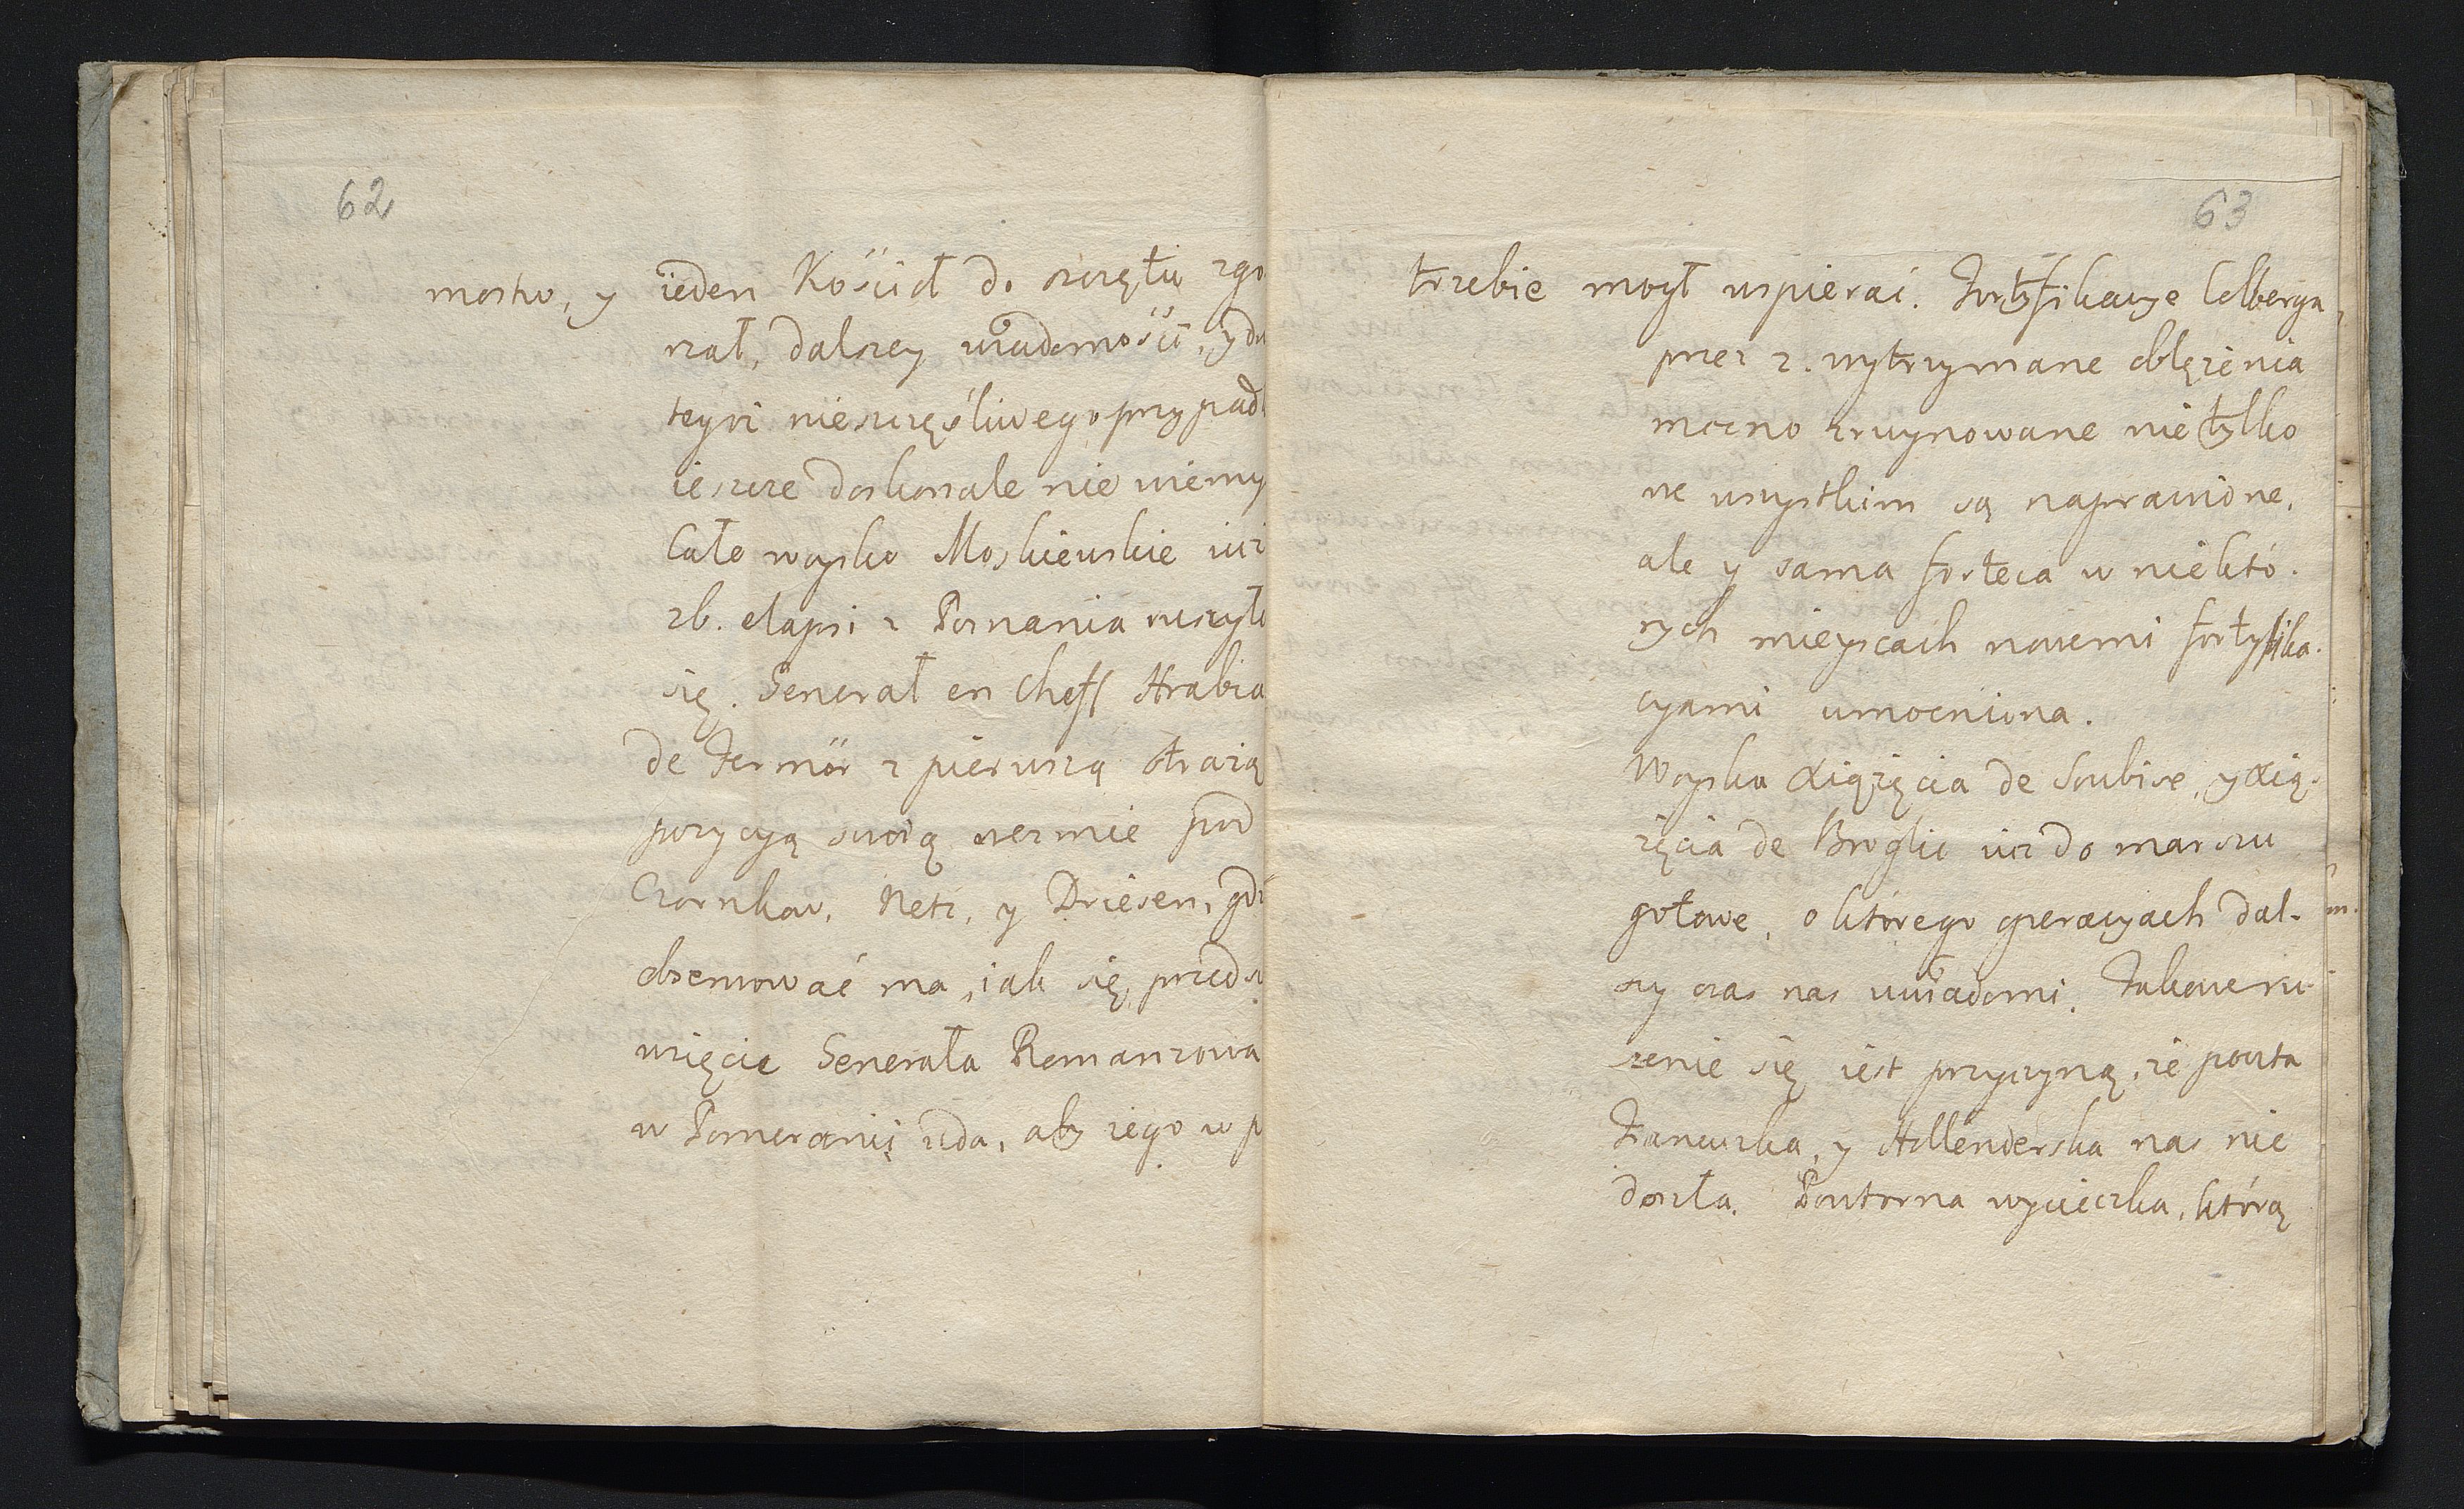 62
mosko, y ieden Kośćioł do szczętu zgo
rzał, dalszey wiadomośći, y do
tegoż nieszczęśliwego przypad
ieszcze doskonale nie wiemy
Całe woysko Moskiewskie iuż
26. elapsi z Poznania ruszyło
się. Generał en Cheff Hrabia
de Fermör z pierwszą strażą
pozycyą swoią weźmie pod
Czarnkow, Netz, y Driesen, gdz
obserwować ma, iak się przedsi
wzięcie Generała Romanzowa
w Pomeranij uda, aby iego w p
63
trzebie mogł wspierać. Fortyfikacye Colberga
przez 2. wytrzymane oblężenia
mocno zruynowane nie tylko
we wszystkim są naprawione,
ale y sama forteca w niektó.
rych mieyscach nowemi fortyfika.
cyami umocniona.
Woyska Xiążęcia de Soubise, y Xią.
żęcia de Broglio iuż do marszu
gotowe, o którego operacyach dal.
szy czas nas uwiadomi. Takowe ru.
szenie się iest przyczyną, że poczta
Francuzka, y Hollenderska nas nie
doszła. Powtorna wycieczka, którą